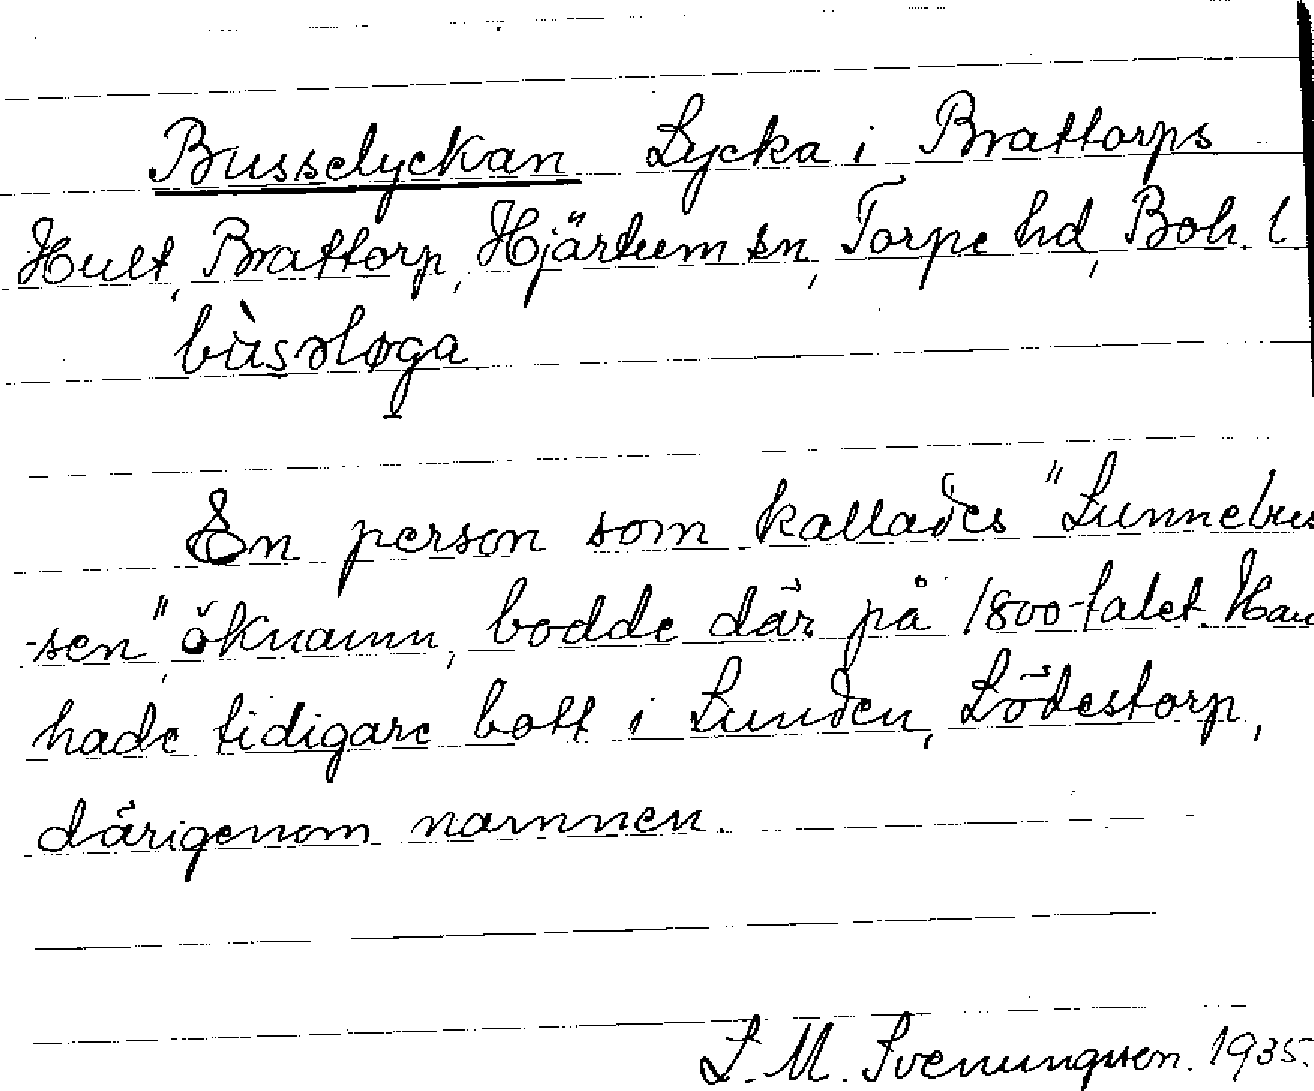 Busselyckan Lycka i Brattorps
Hult, Brattorp, Hjärtum sn, Torpe hd, Boh. l.
bùsəløga
En person som kallades "Lunnebus
-sen", öknamn, bodde där på 1800-talet. Han
hade tidigare bott i Lunden, Lödestorp,
därigenom namnen.
S. M. Svenungsson. 1935.